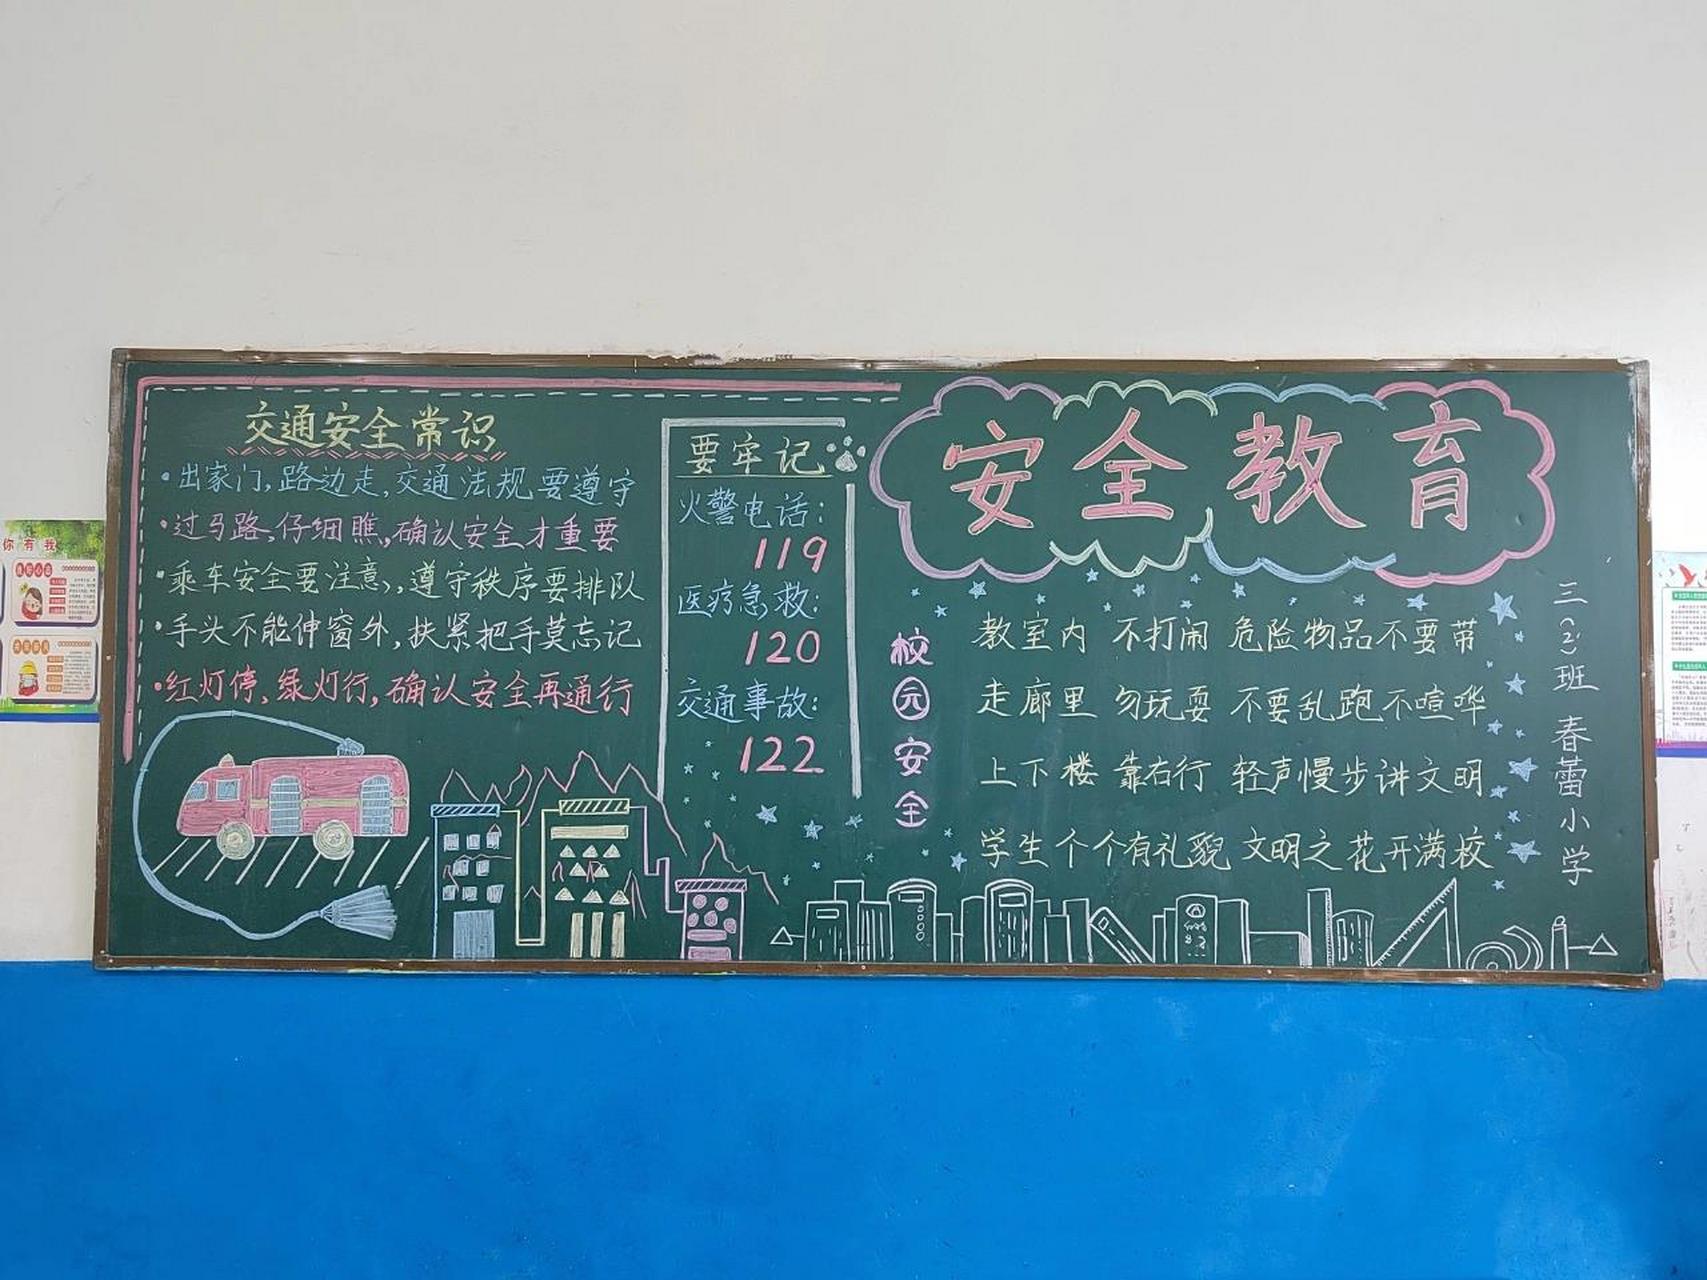 交通安全常识
·出家门,路边走,交通法规要遵守
·过马路,仔细瞧,确认安全才重要
·乘车安全要注意,遵守秩序要排队
·手头不能伸窗外,扶紧把手莫忘记
·红灯停,绿灯行,确认安全再通行
要牢记
火警电话:
119
医疗急救:
120
交通事故:
122
安全教育
校园安全
教室内 不打闹 危险物品不要带
走廊里 勿玩耍 不要乱跑不喧哗
上下楼 靠右行 轻声慢步讲文明
学生个个有礼貌 文明之花开满校
三(2)班 春蕾小学
你有我